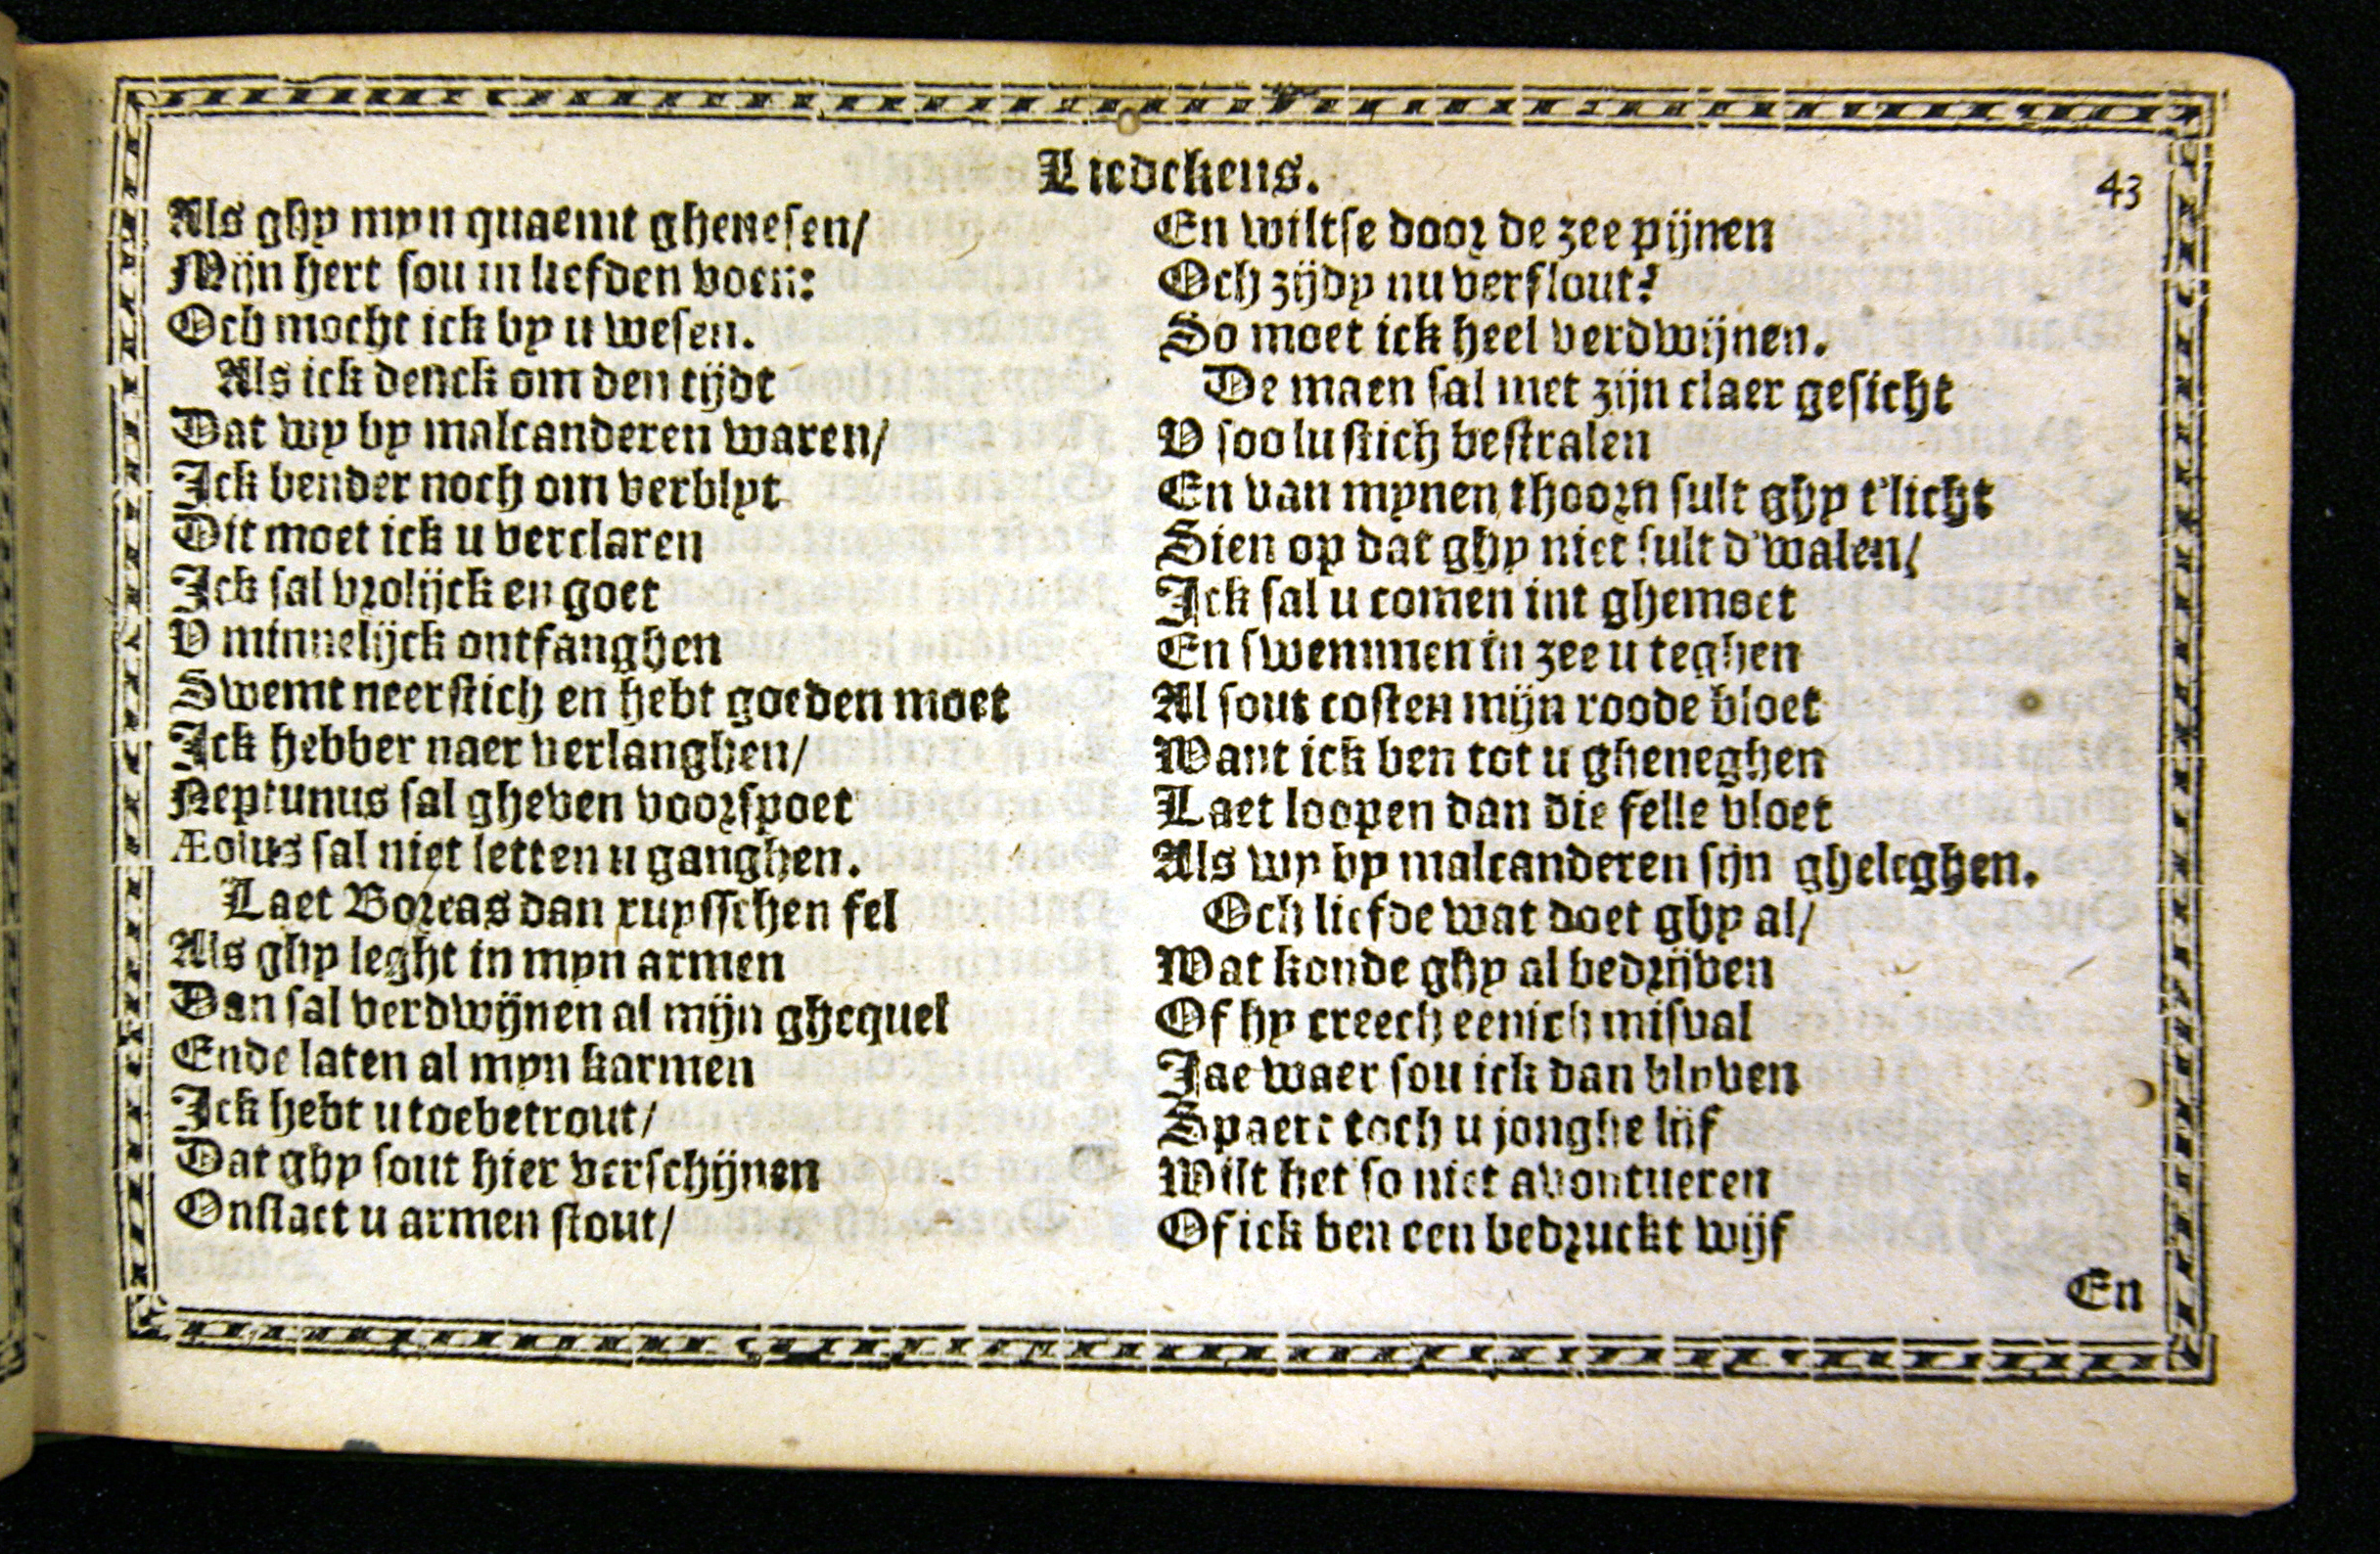 Liedekens.
43
Als ghy myn quaemt ghenesen/
Mijn hert sou in liefden voen:
Och mocht ick by u wesen.
Als ick denck om den tijdt
Dat wy by malcanderen waren/
Ick bender noch om verblyt
Dit moet ick u verclaren
Ick sal vrolijck en goet
V minnelijck ontfanghen
Swemt neerstich en hebt goeden moet
Ick hebber naer verlanghen/
Neptunus sal gheven voorspoet
Æolus sal niet letten u ganghen.
Laet Boreas dan ruysschen fel
Als ghy leght in myn armen
Dan sal verdwijnen al mijn ghequel
Ende laten al myn karmen
Ick hebt u toebetrout/
Dat ghy sout hier verschijnen
Onslaet u armen stout/
En wiltse door de zee pijnen
Och zijdy nu verflout?
So moet ick heel verdwijnen.
De maen sal met zijn claer gesicht
V soo lustich bestralen
En van mynen thoorn sult ghy t'licht
Sien op dat ghy niet sult d'walen/
Ick sal u comen int ghemoet
En swemmen in zee u teghen
Al sout costen mijn roode bloet
Want ick ben tot u gheneghen
Laet loopen dan die felle vloet
Als wy by malcanderen sijn gheleghen.
Och liefde wat doet ghy al/
Wat konde ghy al bedrijven
Of hy creech eenich misval
Jae waer sou ick dan blyven
Spaert toch u jonghe lijf
Wilt het so niet avontueren
Of ick ben een bedruckt wijf
En